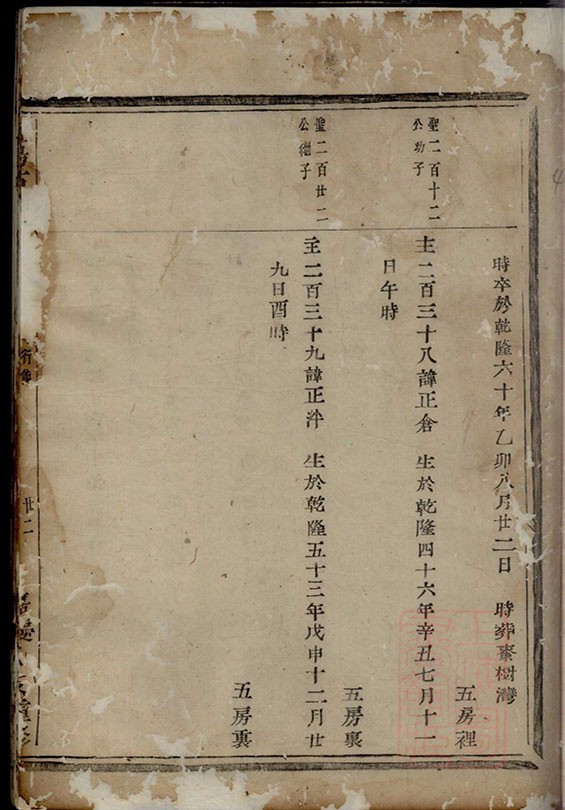 時卒於乾隆六十年乙卯八月廿二日 時葬棗樹灣
五房裡
聖二百十二
公功子
主二百三十八諱正倉 生於乾隆四十六年辛丑七月十一
日午時
五房裏
聖二百廿二
公
子
主二百三十九諱正泮 生於乾隆五十三年戊申十二月廿
九日酉時
五房裏
行傳
廿二